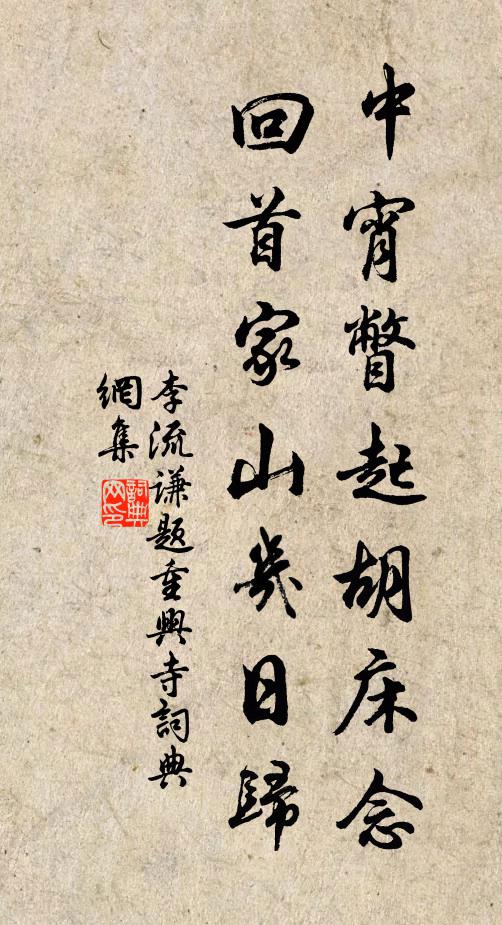 中宵瞥起胡床念
回首家山幾日歸
李流謙題重興寺詞典
網集
詞典網印